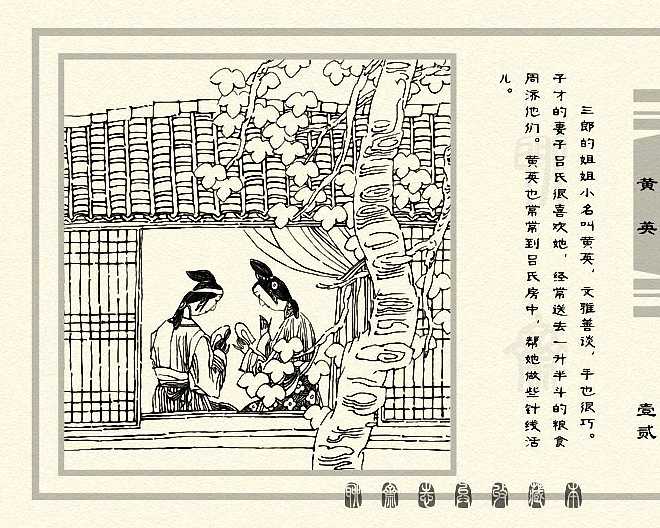 三郎的姐姐小名叫黄英，文雅善谈，手也很巧。
子才的妻子吕氏很喜欢她，经常送去一升半斗的粮食
周济他们。黄英也常常到吕氏房中，帮她做些针线活
儿。
黄英
壹贰